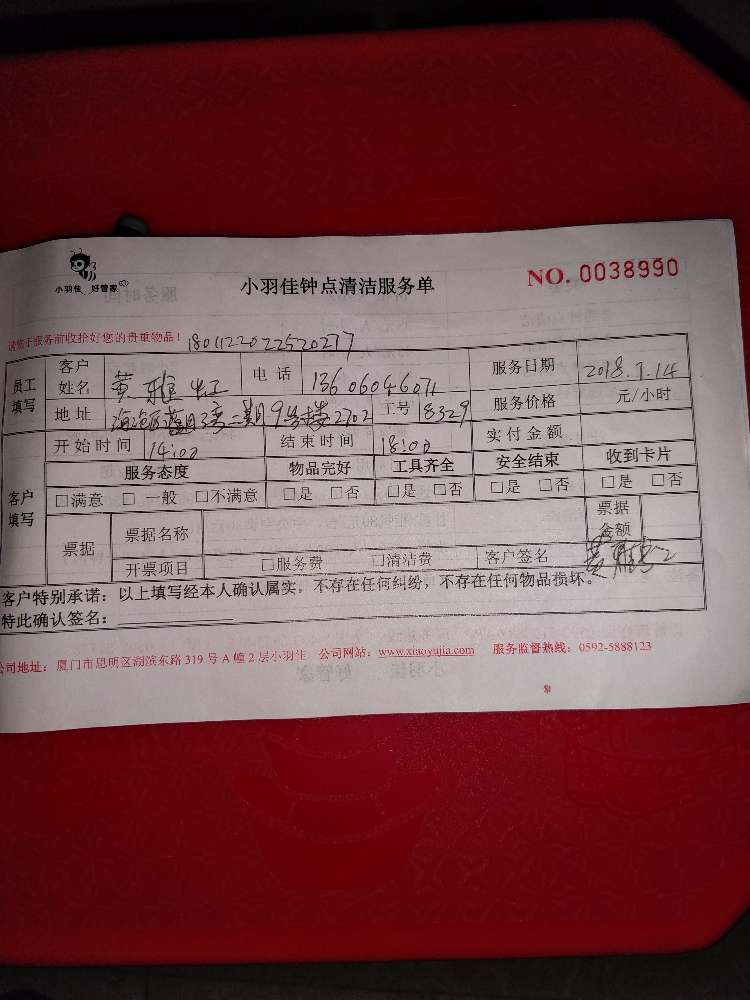 小羽佳 好管家
小羽佳钟点清洁服务单
NO. 0038990
请您于服务前收拾好您的贵重物品！
员工填写 客户姓名 黄雅 电话 13606046071 服务日期 2018.7.14
地址 海沧 二期9号楼2702 工号 18329 服务价格 元/小时
客户填写 开始时间 14:00 结束时间 18:00 实付金额
服务态度 物品完好 工具齐全 安全结束 收到卡片
□满意 □一般 □不满意 □是 □否 □是 □否 □是 □否 □是 □否
票据 票据名称 票据金额
开票项目 □服务费 □清洁费 客户签名
客户特别承诺：以上填写经本人确认属实，不存在任何纠纷，不存在任何物品损坏。
特此确认签名：
公司地址：厦门市思明区湖滨东路319号A幢2层小羽佳 公司网站：www.xiaoyujia.com 服务监督热线：0592-5888123